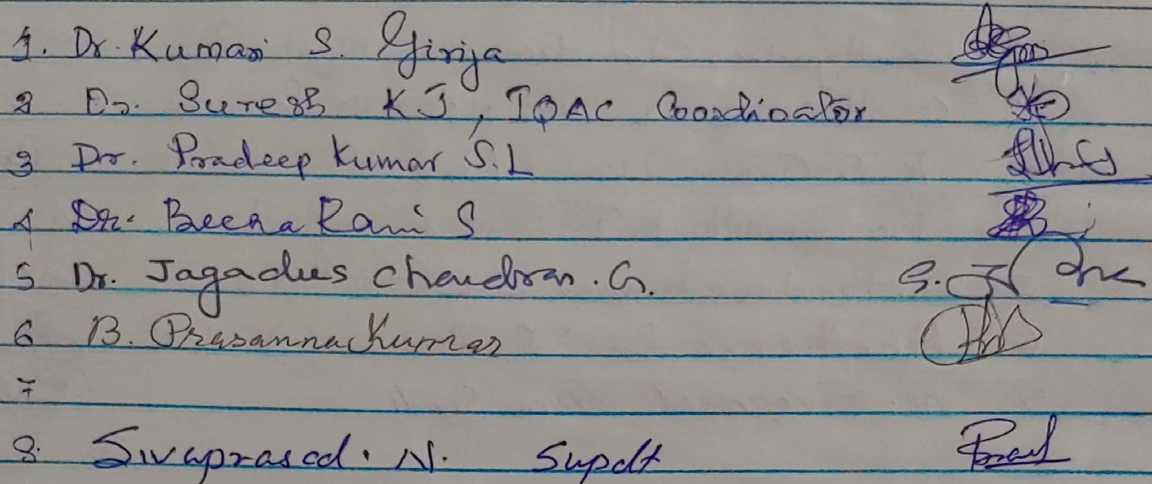 1. Dr. Kumari S. Girija
2 Dr. Suresh KJ, IQAC Coordinator
3 Dr. Pradeep Kumar S.L
4 Dr. Beena Rani S
5 Dr. Jagadees Chandran. G.
6 B. Prasannakumar
7
8. Sivaprasad. N. Supdt